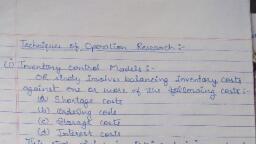 Techniques of Operation Research :-
(1) Inventory Control Models :-
OR study involves balancing inventory costs
against one or more of the following costs :-
(a) Shortage costs
(b) Ordering costs
(c) Storage costs
(d) Interest costs
This